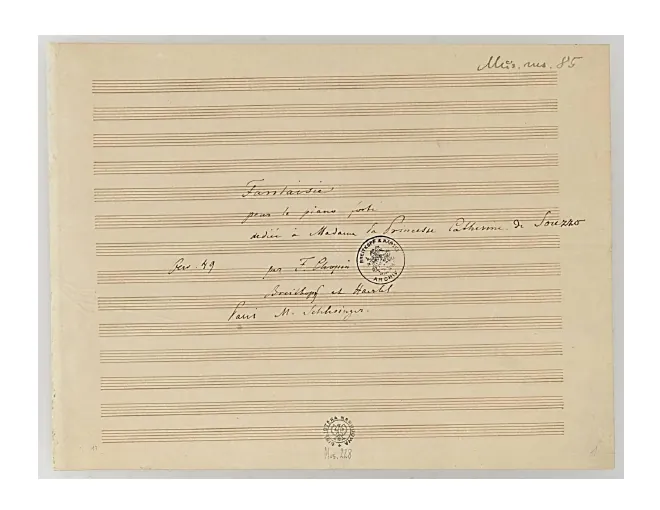 Mus. ms. 85
Fantaisie
pour le piano forté
dediée à Madame la Princesse Catherine de Souzzo
Oeuv. 49 par F. Chopin
BREITKOPF & HÄRTEL
ARCHIV
Breitkopf et Haertel
Paris M. Schlesinger.
BIBLIOTEKA NARODOWA
Mus. 228